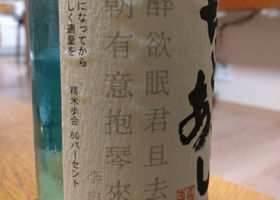 あし
醉欲眠君且去
朝有意抱琴來
李
になってから
しく適量を
精米歩合 60パーセント